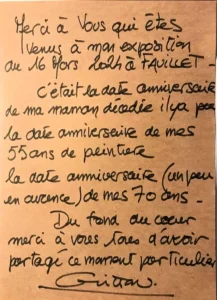 Merci à Vous qui êtes
Venus à mon exposition
du 16 Mars 2024 à FAUILLET-
C'était la date anniversaire
de ma maman décédée il y a peu
la date anniversaire de mes
55 ans de peinture
la date anniversaire (un peu
en avance) de mes 70 ans-
Du fond du coeur
merci à vous tous d'avoir
partagé ce moment particulier